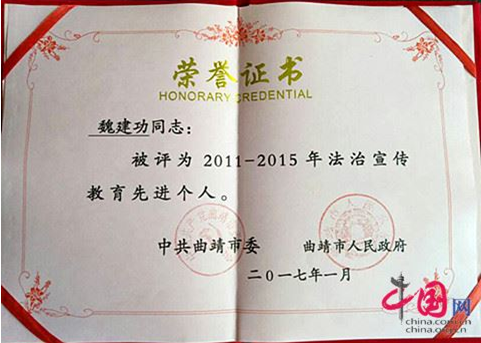 荣誉证书
HONORARY CREDENTIAL
魏建功同志:
被评为 2011-2015 年法治宣传
教育先进个人。
中共曲靖市委 曲靖市人民政府
二0一七年一月
中国网
china.com.cn